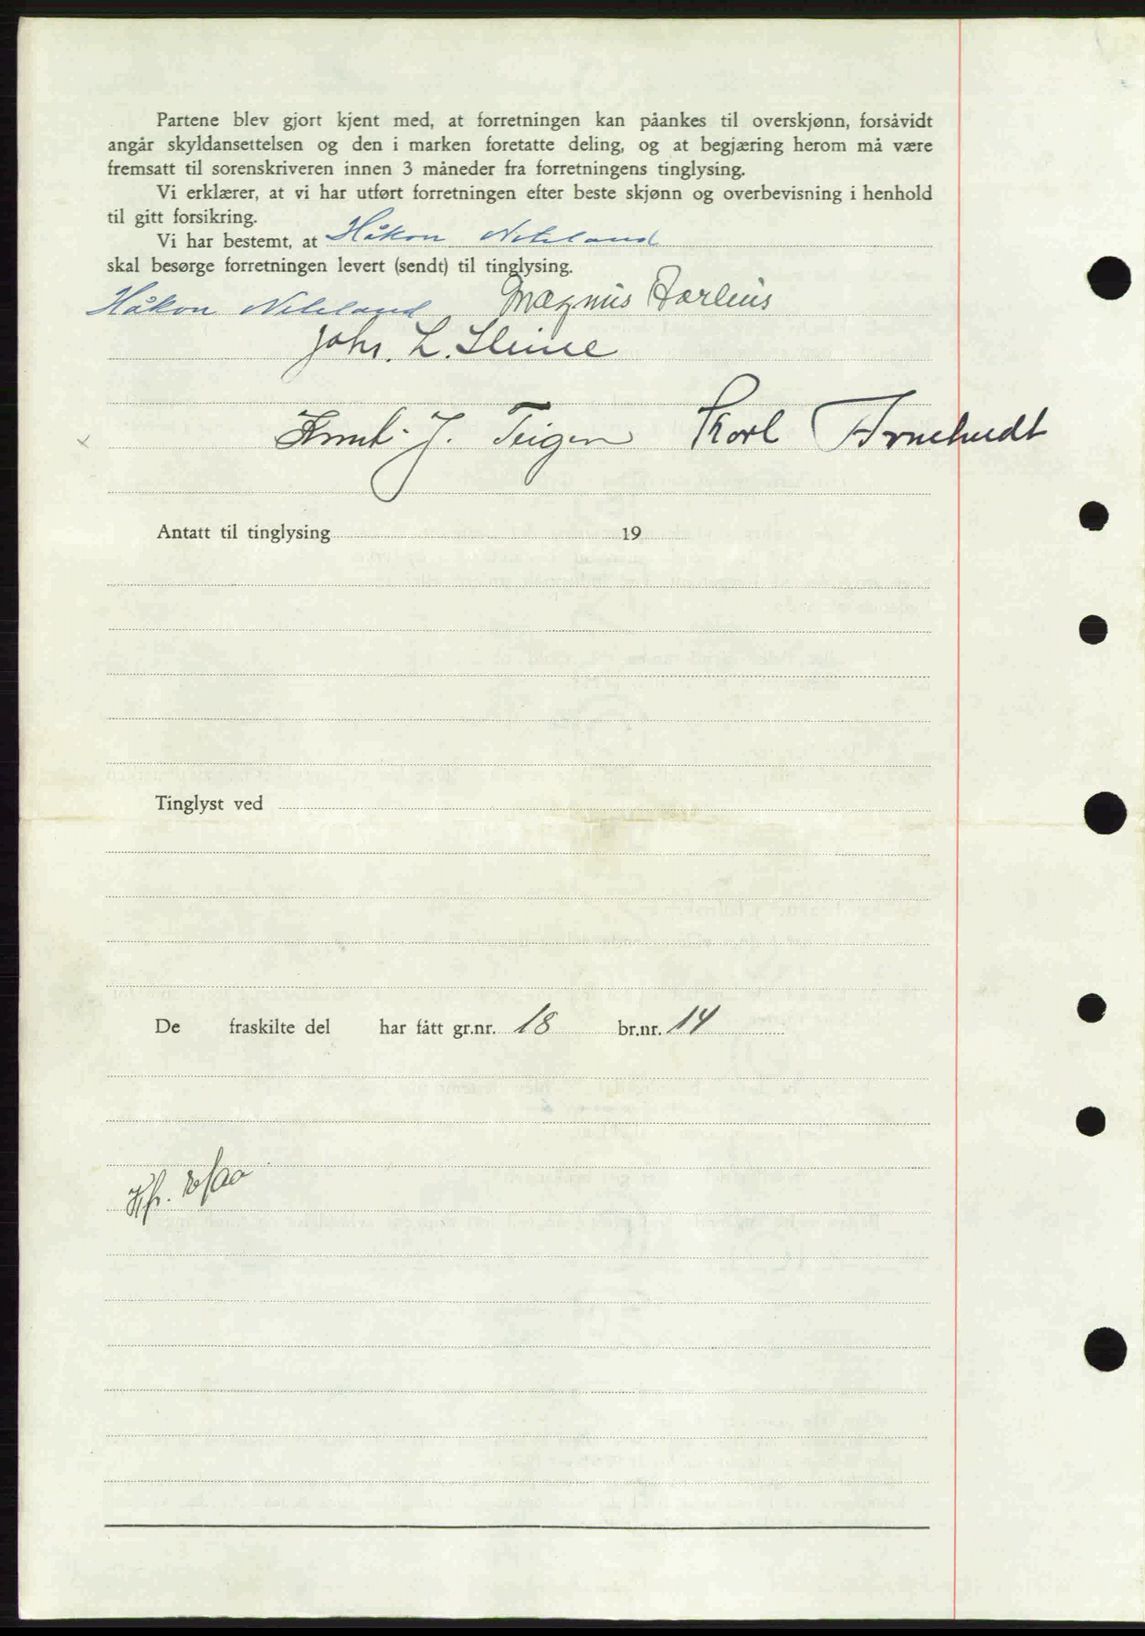 Partene blev gjort kjent med, at forretningen kan påankes til overskjønn, forsåvidt
angår skyldansettelsen og den i marken foretatte deling, og at begjæring herom må være
fremsatt til sorenskriveren innen 3 måneder fra forretningens tinglysing.
Vi erklærer, at vi har utført forretningen efter beste skjønn og overbevisning i henhold
til gitt forsikring.
Vi har bestemt, at Håkon
skal besørge forretningen levert (sendt) til tinglysing.
Håkon Magnus
Johs. L.
J. Teigen Karl
Antatt til tinglysing 19
Tinglyst ved
De fraskilte del har fått gr.nr. 18 br.nr. 14